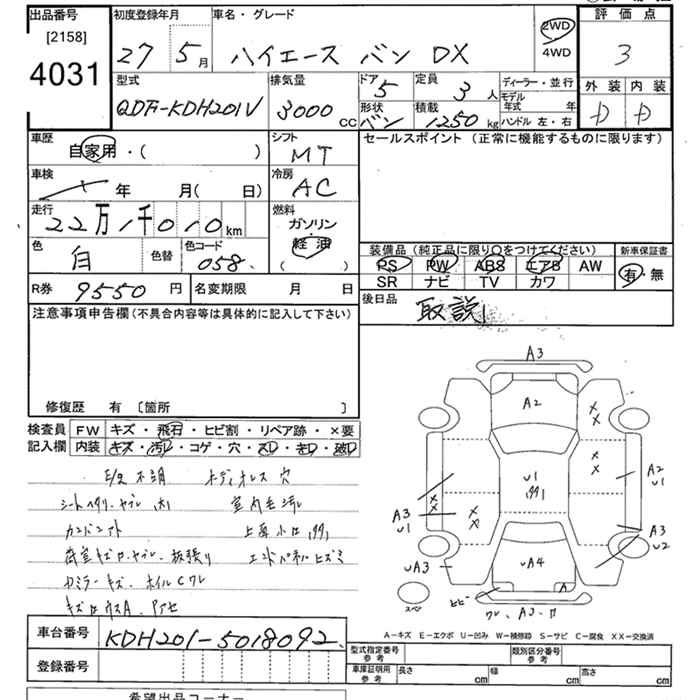 出品番号 初度登録年月 車名・グレード 評価点
[2158]
4031 27 5月 ハイエース バン DX 2WD 4WD 3
型式 排気量 ドア 5 定員 3人 ディーラー・並行 外装 内装
モデル年式 年
QDF-KDH201V 3000cc 形状 バン 積載 1250kg ハンドル 左・右 D D
車歴 自家用・( ) シフト MT セールスポイント (正常に機能するものに限ります)
車検 年 月( 日) 冷房 AC
走行 22万1千010km 燃料 ガソリン・軽油 ( )
色 白 色替 色コード 058 装備品(純正品に限り○をつけてください) 新車保証書
PS PW ABS エアB AW 有・無
SR ナビ TV カワ
R券 9550円 名変期限 月 日 後日品 取説
注意事項申告欄(不具合内容等は具体的に記入して下さい)
修復歴 有 〔箇所 〕
検査員記入欄 FW キズ・飛石・ヒビ割・リペア跡・×要
内装 キズ・汚レ・コゲ・穴・スレ・キレ・破レ
オーディオレス 穴
シートヘタリ、ヤブレ 室内毛汚レ
荷室キズ、ヤブレ、板張り エンドパネルヒズミ
A3
A2
A2
U1
U1
A3
U1
A3
U2
UA3
UA4
A
スペ
ヒビ
ワレ、A3、
A-キズ E-エクボ U-凹み W-補修跡 S-サビ C-腐食 XX-交換済
車台番号 KDH201-5018092
登録番号
型式指定番号 参考 類別区分番号 参考
車庫証明用 参考 長さ cm 幅 cm 高さ cm
希望出品コーナー